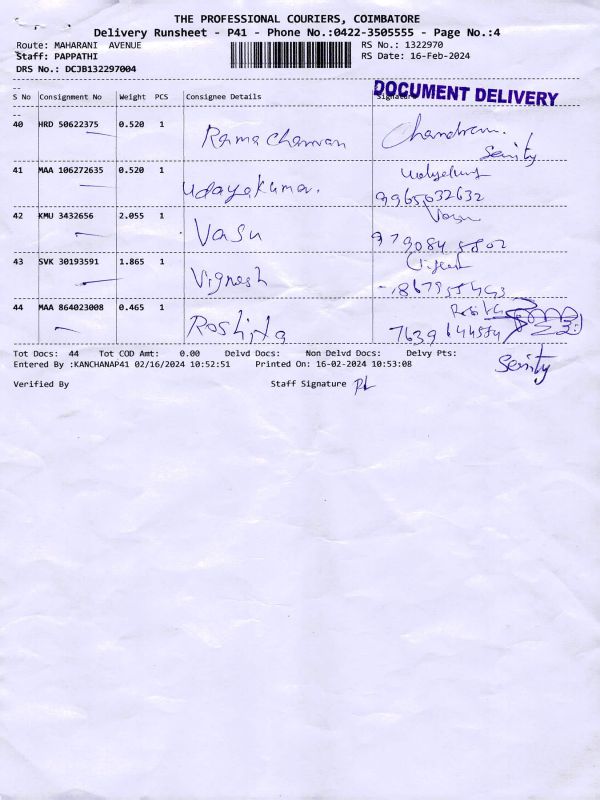 THE PROFESSIONAL COURIERS, COIMBATORE
Delivery Runsheet - P41 - Phone No.:0422-3505555 - Page No.:4
Route: MAHARANI AVENUE RS No.: 1322970
Staff: PAPPATHI RS Date: 16-Feb-2024
DRS No.: DCJB132297004
DOCUMENT DELIVERY
S No Consignment No Weight PCS Consignee Details Signature
40 HRD 50622375 0.520 1 Ramachanran Chandran.
Serity
41 MAA 106272635 0.520 1 Udayakumar.
9965032632
42 KMU 3432656 2.055 1 Vasu Vasu
9790845802
43 SVK 30193591 1.865 1 Vignesh
44 MAA 864023008 0.465 1 Roshita
7639644584
Tot Docs: 44 Tot COD Amt: 0.00 Delvd Docs: Non Delvd Docs: Delvy Pts:
Entered By :KANCHANAP41 02/16/2024 10:52:51 Printed On: 16-02-2024 10:53:08
Serity
Verified By Staff Signature